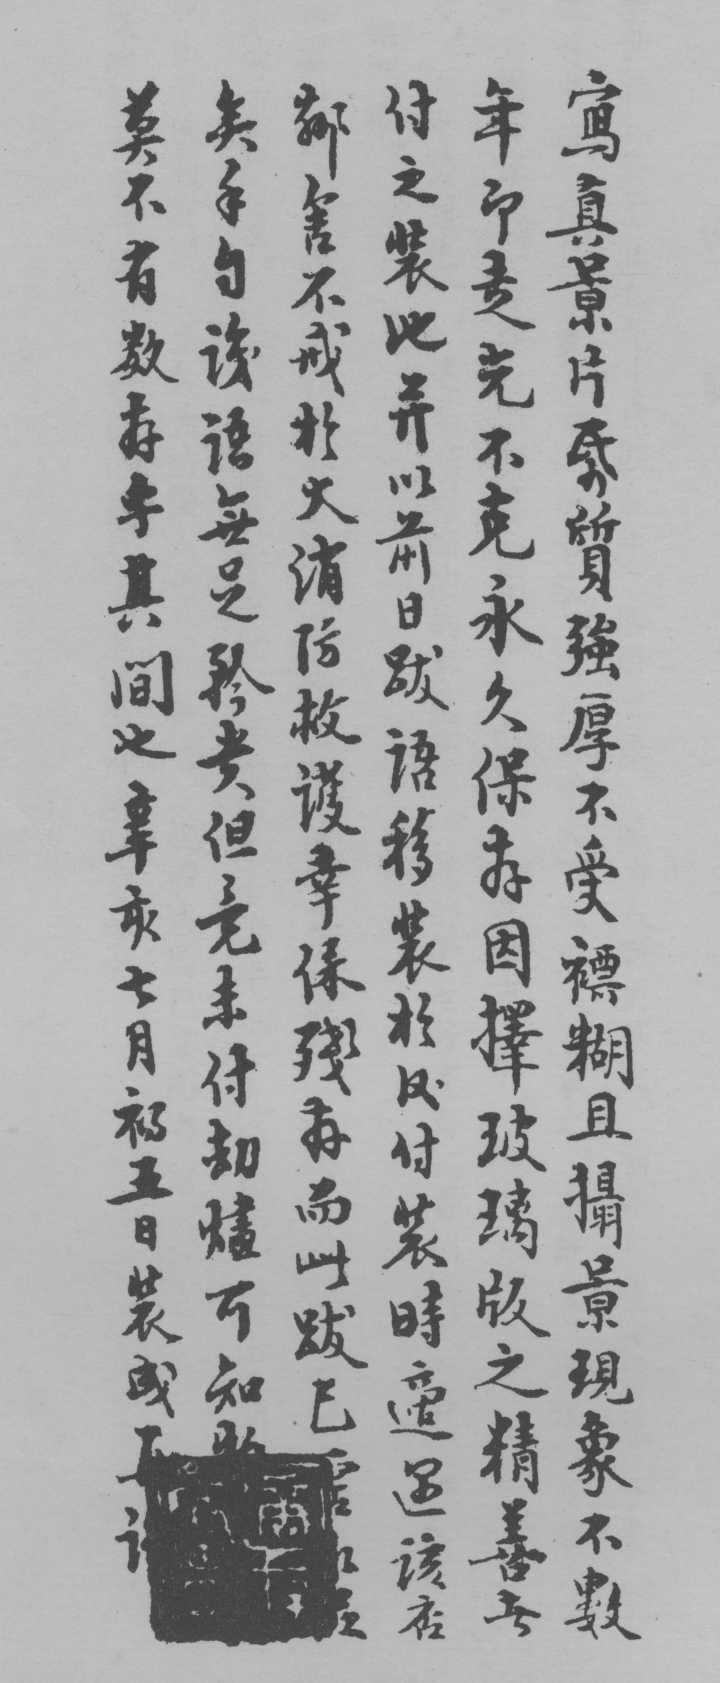 寫真景片紙質強厚不受裱糊且攝景現象不數
年即走光不克永久保存因擇玻璃版之精善者
付之裝池并以前日跋語移裝於後付裝時適遇該店
鄰舍不戒於火消防救護幸保殘存而此跋已
矣手自識語無足矜貴但竟未付劫燼可知
莫不有數存乎其間也辜亥七月初五日裝成再識